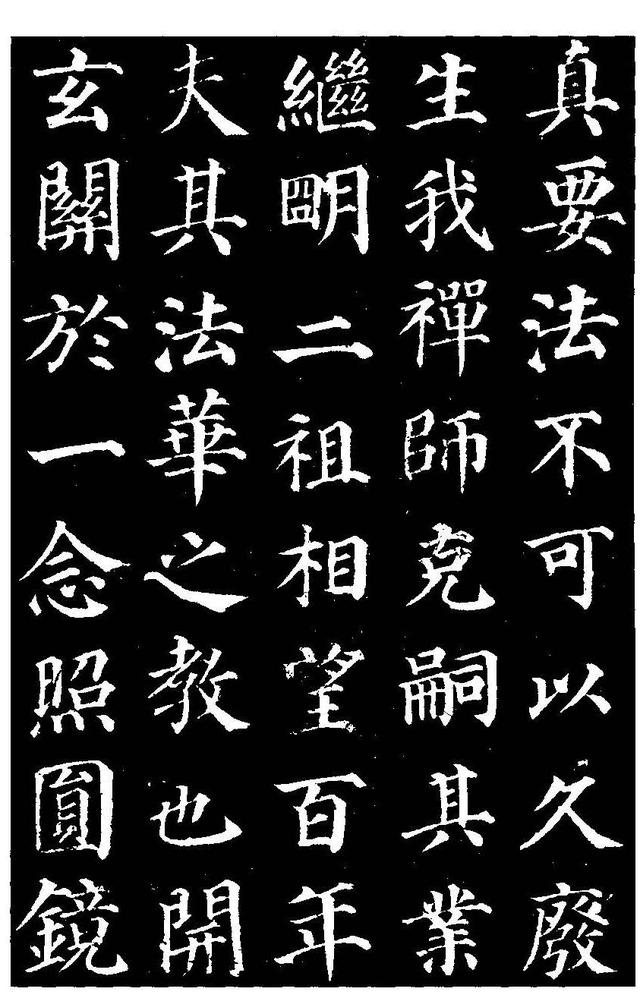 真要法不可以久廢
生我禪師克嗣其業
繼明二祖相望百年
夫其法華之教也開
玄關於一念照圓鏡